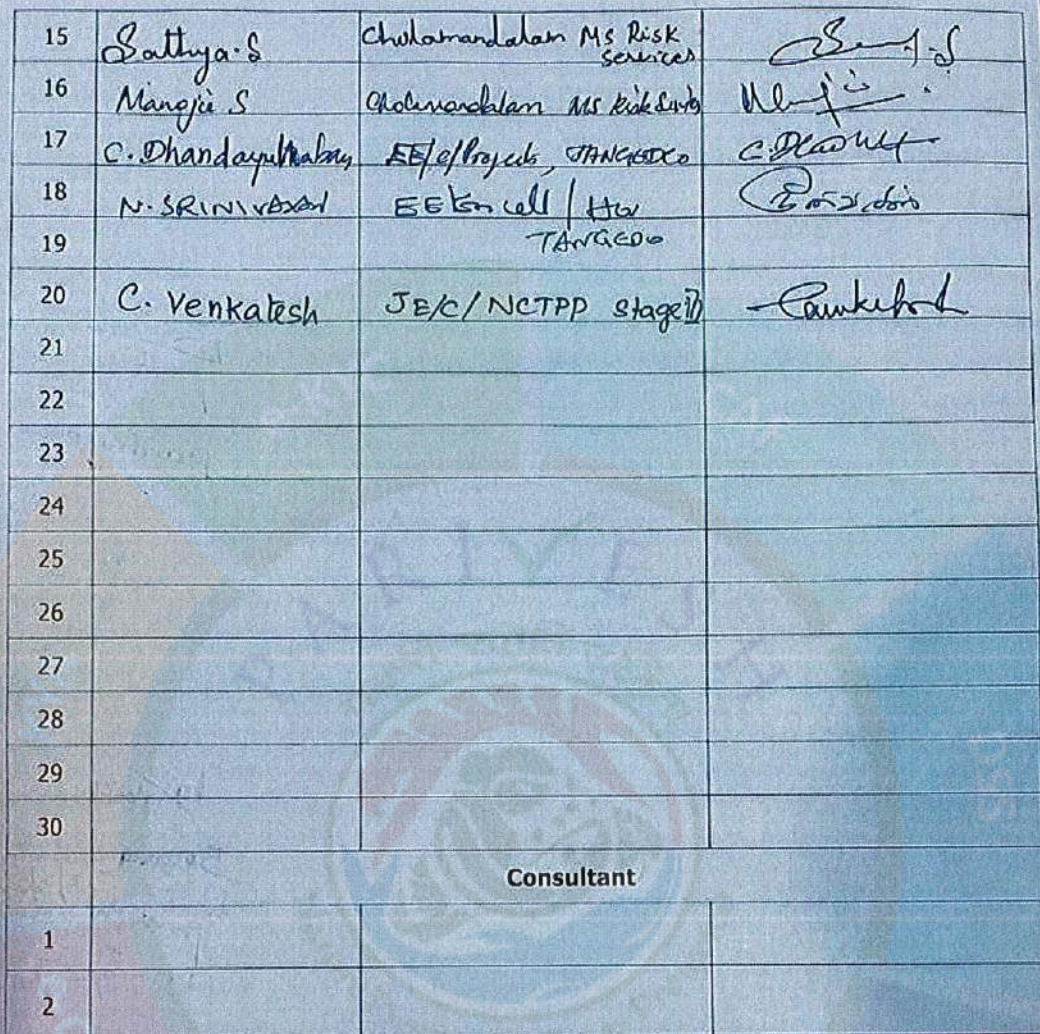 15 Sathya.S Cholamandalam MS Risk Services
16 Manojii S Cholamandalam MS Risk Services
17 C. Dhandayuthabany EE/C/Projects, TANGEDCO C.
18 N. SRINIVASAN EE cell / TANGEDCO
19
20 C. Venkatesh JE/C/NCTPP Stage III
21
22
23
24
25
26
27
28
29
30
Consultant
1
2
PARIVESH